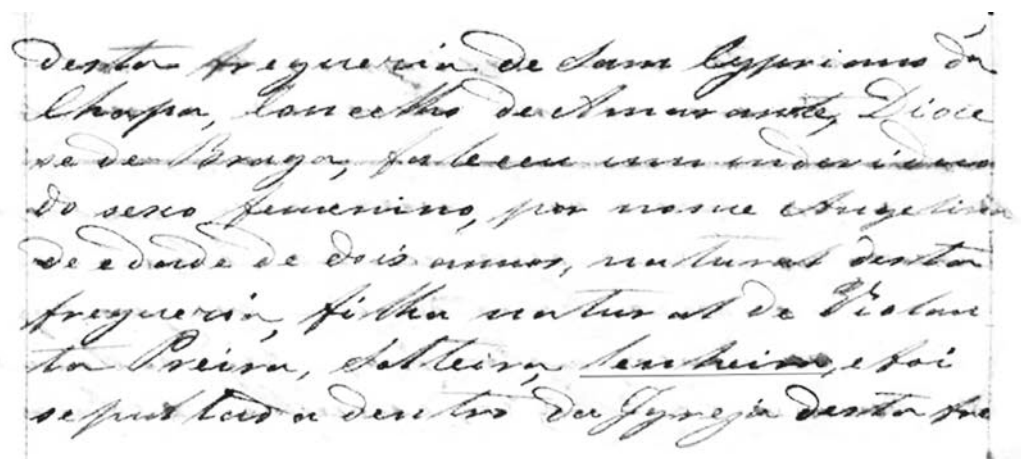 desta freguezia de Sam Cypriano da
Chapa, Concelho de Amarante, Dioce
se de Braga, faleceu um individuo
do sexo femenino, por nome Angelina
de edade de dois annos, natural desta
freguezia, filha natural de Violan
ta Preira, Solteira, lenheira, e foi
sepultada dentro da Igreja desta fre